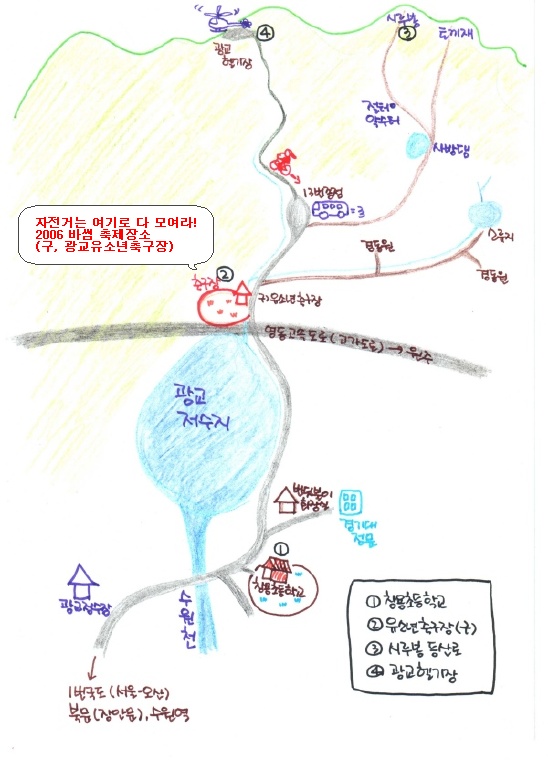 ④
광교
헬기장
시루봉
③
토끼재
절터
약수터
사방댐
13번종점
자전거는 여기로 다 모여라!
2006 바씸 축제장소
(구, 광교유소년축구장)
경동원
경동원
축구장
②
구)유소년축구장
영동고속도로(고가도로) → 원주
광교
저수지
번뒤붙이
화장실
경기대
전문
①
창용초등학교
광교정수장
수원천
1번국도 (서울-오산)
북문(장안문), 수원역
① 창용초등학교
② 유소년축구장(구)
③ 시루봉 등산로
④ 광교헬기장